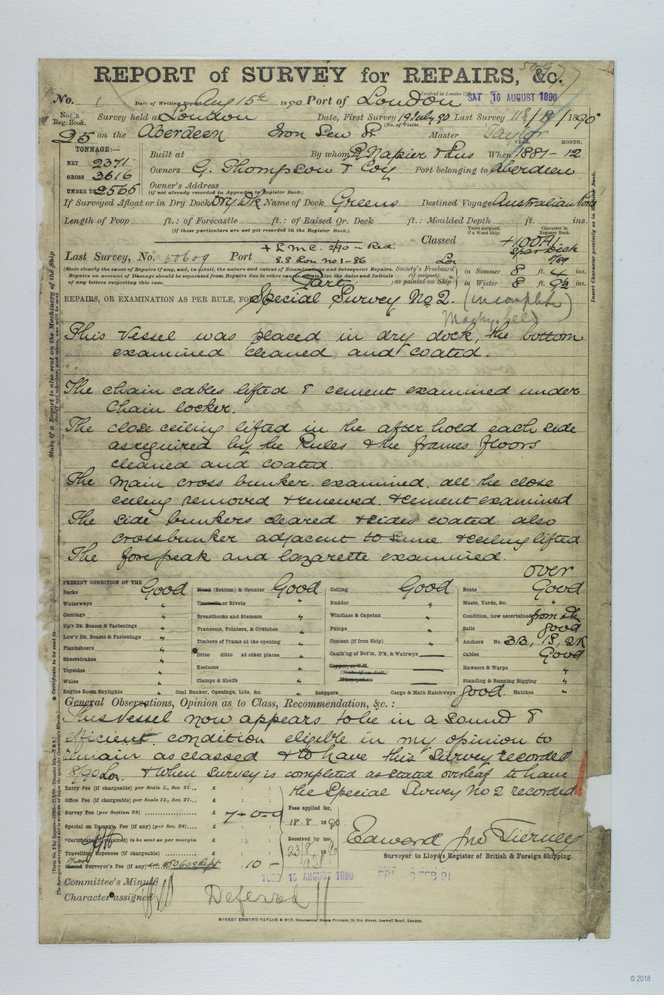 REPORT of SURVEY for REPAIRS, &c.
No. Date of Writing Report Aug 15th 1890 Port of London SAT 16 AUGUST 1890
No. in Reg. Book. Survey held at London Date, First Survey 19 July 90 Last Survey 1890
25 on the Aberdeen Iron Scw Sr Master Taylor
TONNAGE:—
NET 2371 Built at By whom R Napier & Sons When 1881-12
YEAR. MONTH.
GROSS 3616 Owners G. Thompson & Coy Port belonging to Aberdeen
UNDER DK 2565 Owner's Address
(if not already recorded in Appendix to Register Book.)
If Surveyed Afloat or in Dry Dock Dry Dk Name of Dock Greens Destined Voyage Australian
Length of Poop ft.: of Forecastle ft.: of Raised Qr. Deck ft.: Moulded Depth ft. ins.
(if these particulars are not yet recorded in the Register Book.)
+ LMC. 2/90 - Red Classed +100A1
Spar Deck
Last Survey, No. 50609 Port S.S Lon no 1-86 Lon 7/89
Society's Freeboard (if assigned), as painted on Ship in Summer 8 ft. 4 ins.
in Winter 8 ft. 9½ ins.
Part
REPAIRS, OR EXAMINATION AS PER RULE, FOR Special Survey No 2. (incomplete)
This Vessel was placed in dry dock, the bottom
examined cleaned and coated.
The chain cables lifted & cement examined under
Chain locker.
The close ceiling lifted in the after hold each side
as required by the Rules & the frames floors
cleaned and coated
The main cross bunker examined, all the close
ceiling removed & renewed, & cement examined
The side bunkers cleared & sides coated also
crossbunker adjacent to same & ceiling lifted
The forepeak and lazarette examined.
over
PRESENT CONDITION OF THE
Decks Good (Bottom) & Counter Good Ceiling Good Boats Good
Waterways " or Rivets " Rudder " Masts, Yards, &c. "
Comings " Breasthooks and Stemson " Windlass & Capstan " Condition, how ascertained from Dk
Up'r Dk. Beams & Fastenings " Transoms, Pointers, & Crutches " Pumps " Sails good
Low'r Dk. Beams & Fastenings " Timbers of Frame at the opening " Cement (if Iron Ship) " Anchors No. 3B, 1S, 2K
Planksheers " Ditto ditto at other places " Caulk'ng of Bot'm, D'k, & Waterways Cables Good
Sheerstrakes " Keelsons " Hawsers & Warps "
Topsides "
Wales " Clamps & Shelfs " Standing & Running Rigging "
Engine Room Skylights " Coal Bunker, Openings, Lids, &c. " Scuppers " Cargo & Main Hatchways good Hatches "
General Observations, Opinion as to Class, Recommendation, &c.:
This Vessel now appears to be in a sound &
efficient condition eligible in my opinion to
remain as classed & to have this Survey recorded
8/90 Lon. & When Survey is completed as stated overleaf to have
the Special Survey No 2 recorded
Entry Fee (if chargeable) per Scale I., Sec. 27... £ : :
Office Fee (if chargeable) per Scale II., Sec. 27... £ : : Fees applied for,
Survey Fee (per Section 28) £ 7 - 0 - 0 18.8 1890
Special on Damage Fee (if any) (per Sec. 28) £ : : Received by me,
Travelling Expenses (if chargeable) £ : : 23/8 1890
Surveyor's Fee (if any) 10 -
Edward Jno Tierney
Surveyor to Lloyd's Register of British & Foreign Shipping.
Committee's Minute TUES 19 AUGUST 1890 FRI 6 FEB 91
Character assigned Deferred
ROBERT EDMUND TAYLOR & SON, Commercial Steam Printers, 19, Old Street, Goswell Road, London.
© 2018